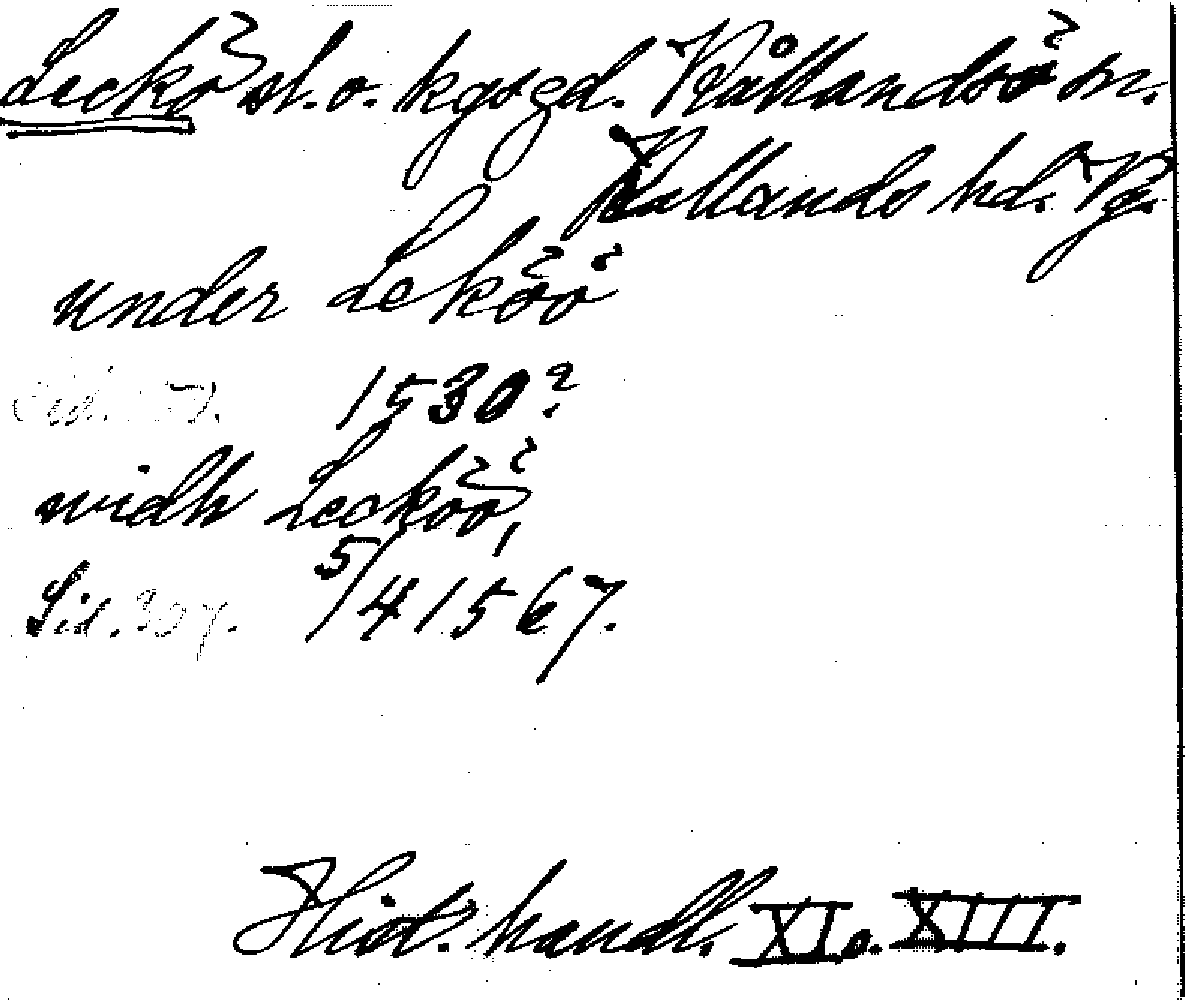 Leckö sl. o. kgsgd. Kållandsö sn.
Kållands hd. Vg.
under Leköö
Sid. 1530?
widh Lecköö,
Sid. 307. 5/4 1567.
Hist. handl. XI o. XIII.